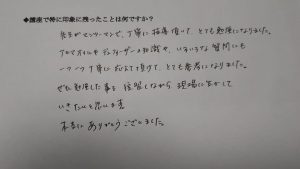 ◆講座で特に印象に残ったことは何ですか？
先生がマンツーマンで、丁寧に指導頂いて、とても勉強になりました。
アロマオイルやディフューザーの知識や、いろいろな質問にも
一つ一つ丁寧に応えて頂けて、とても参考になりました。
ぜひ勉強した事を復習しながら現場に生かして
いきたいと思います
本当にありがとうございました。